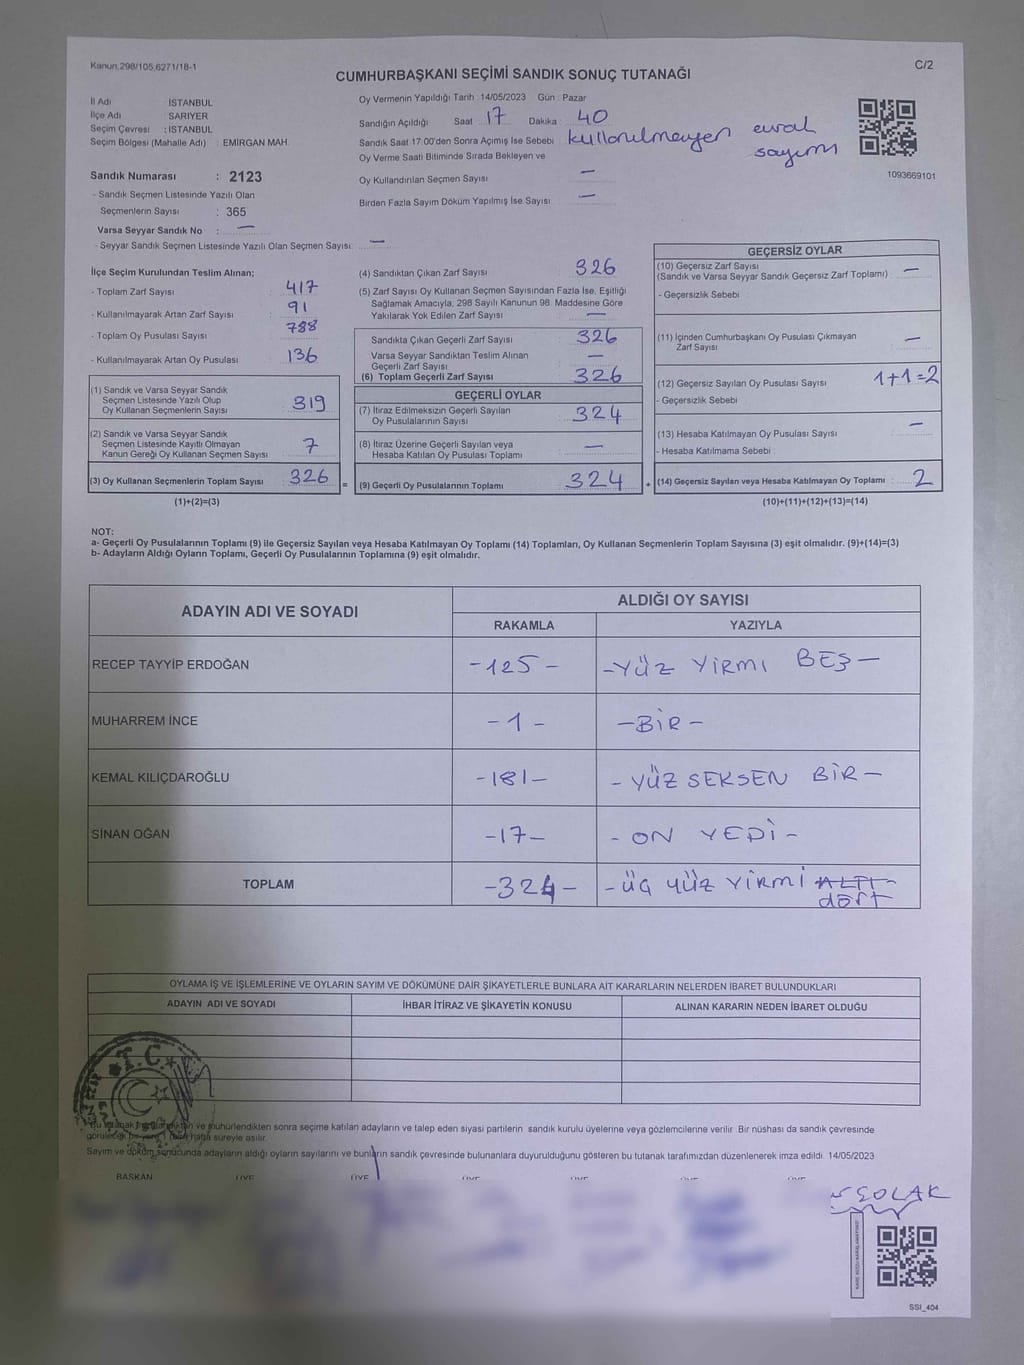 Kanun.298/105;6271/18-1
C/2
CUMHURBAŞKANI SEÇİMİ SANDIK SONUÇ TUTANAĞI
İl Adı İSTANBUL
İlçe Adı SARIYER
Seçim Çevresi : İSTANBUL
Seçim Bölgesi (Mahalle Adı) : EMİRGAN MAH.
Oy Vermenin Yapıldığı Tarih : 14/05/2023 Gün : Pazar
Sandığın Açıldığı Saat 17 Dakika 40
Sandık Saat 17:00'den Sonra Açımış İse Sebebi kullanılmayan evrak sayımı
Oy Verme Saati Bitiminde Sırada Bekleyen ve
Oy Kullandırılan Seçmen Sayısı —
Birden Fazla Sayım Döküm Yapılmış İse Sayısı —
1093669101
Sandık Numarası : 2123
- Sandık Seçmen Listesinde Yazılı Olan
Seçmenlerin Sayısı : 365
Varsa Seyyar Sandık No : —
- Seyyar Sandık Seçmen Listesinde Yazılı Olan Seçmen Sayısı: —
İlçe Seçim Kurulundan Teslim Alınan;
- Toplam Zarf Sayısı : 417
- Kullanılmayarak Artan Zarf Sayısı : 91
- Toplam Oy Pusulası Sayısı : 788
- Kullanılmayarak Artan Oy Pusulası : 136
(1) Sandık ve Varsa Seyyar Sandık
Seçmen Listesinde Yazılı Olup
Oy Kullanan Seçmenlerin Sayısı 319
(2) Sandık ve Varsa Seyyar Sandık
Seçmen Listesinde Kayıtlı Olmayan
Kanun Gereği Oy Kullanan Seçmen Sayısı 7
(3) Oy Kullanan Seçmenlerin Toplam Sayısı 326
(1)+(2)=(3)
(4) Sandıktan Çıkan Zarf Sayısı 326
(5) Zarf Sayısı Oy Kullanan Seçmen Sayısından Fazla İse, Eşitliği
Sağlamak Amacıyla, 298 Sayılı Kanunun 98. Maddesine Göre
Yakılarak Yok Edilen Zarf Sayısı —
Sandıkta Çıkan Geçerli Zarf Sayısı 326
Varsa Seyyar Sandıktan Teslim Alınan
Geçerli Zarf Sayısı —
(6) Toplam Geçerli Zarf Sayısı 326
GEÇERLİ OYLAR
(7) İtiraz Edilmeksizin Geçerli Sayılan
Oy Pusulalarının Sayısı 324
(8) İtiraz Üzerine Geçerli Sayılan veya
Hesaba Katılan Oy Pusulası Toplamı —
= (9) Geçerli Oy Pusulalarının Toplamı 324
GEÇERSİZ OYLAR
(10) Geçersiz Zarf Sayısı
(Sandık ve Varsa Seyyar Sandık Geçersiz Zarf Toplamı) : —
- Geçersizlik Sebebi
(11) İçinden Cumhurbaşkanı Oy Pusulası Çıkmayan
Zarf Sayısı —
(12) Geçersiz Sayılan Oy Pusulası Sayısı 1+1=2
- Geçersizlik Sebebi
(13) Hesaba Katılmayan Oy Pusulası Sayısı —
- Hesaba Katılmama Sebebi
+ (14) Geçersiz Sayılan veya Hesaba Katılmayan Oy Toplamı : 2
(10)+(11)+(12)+(13)=(14)
NOT:
a- Geçerli Oy Pusulalarının Toplamı (9) ile Geçersiz Sayılan veya Hesaba Katılmayan Oy Toplamı (14) Toplamları, Oy Kullanan Seçmenlerin Toplam Sayısına (3) eşit olmalıdır. (9)+(14)=(3)
b- Adayların Aldığı Oyların Toplamı, Geçerli Oy Pusulalarının Toplamına (9) eşit olmalıdır.
ADAYIN ADI VE SOYADI
ALDIĞI OY SAYISI
RAKAMLA YAZIYLA
RECEP TAYYİP ERDOĞAN -125- -YÜZ YİRMİ BEŞ-
MUHARREM İNCE -1- -BİR-
KEMAL KILIÇDAROĞLU -181- -YÜZ SEKSEN BİR-
SİNAN OĞAN -17- -ON YEDİ-
TOPLAM -324- -ÜÇ YÜZ YİRMİ ALTI-
dört
OYLAMA İŞ VE İŞLEMLERİNE VE OYLARIN SAYIM VE DÖKÜMÜNE DAİR ŞİKAYETLERLE BUNLARA AİT KARARLARIN NELERDEN İBARET BULUNDUKLARI
ADAYIN ADI VE SOYADI İHBAR İTİRAZ VE ŞİKAYETİN KONUSU ALINAN KARARIN NEDEN İBARET OLDUĞU
T.C.
Bu tutanak ve mühürlendikten sonra seçime katılan adayların ve talep eden siyasi partilerin sandık kurulu üyelerine veya gözlemcilerine verilir. Bir nüshası da sandık çevresinde
görülecek bir hafta süreyle asılır.
Sayım ve döküm sonucunda adayların aldığı oyların sayılarını ve bunların sandık çevresinde bulunanlara duyurulduğunu gösteren bu tutanak tarafımızdan düzenlenerek imza edildi. 14/05/2023
BAŞKAN ÜYE ÜYE ÜYE ÜYE ÜYE ÜYE
SOLAK
SSI_404